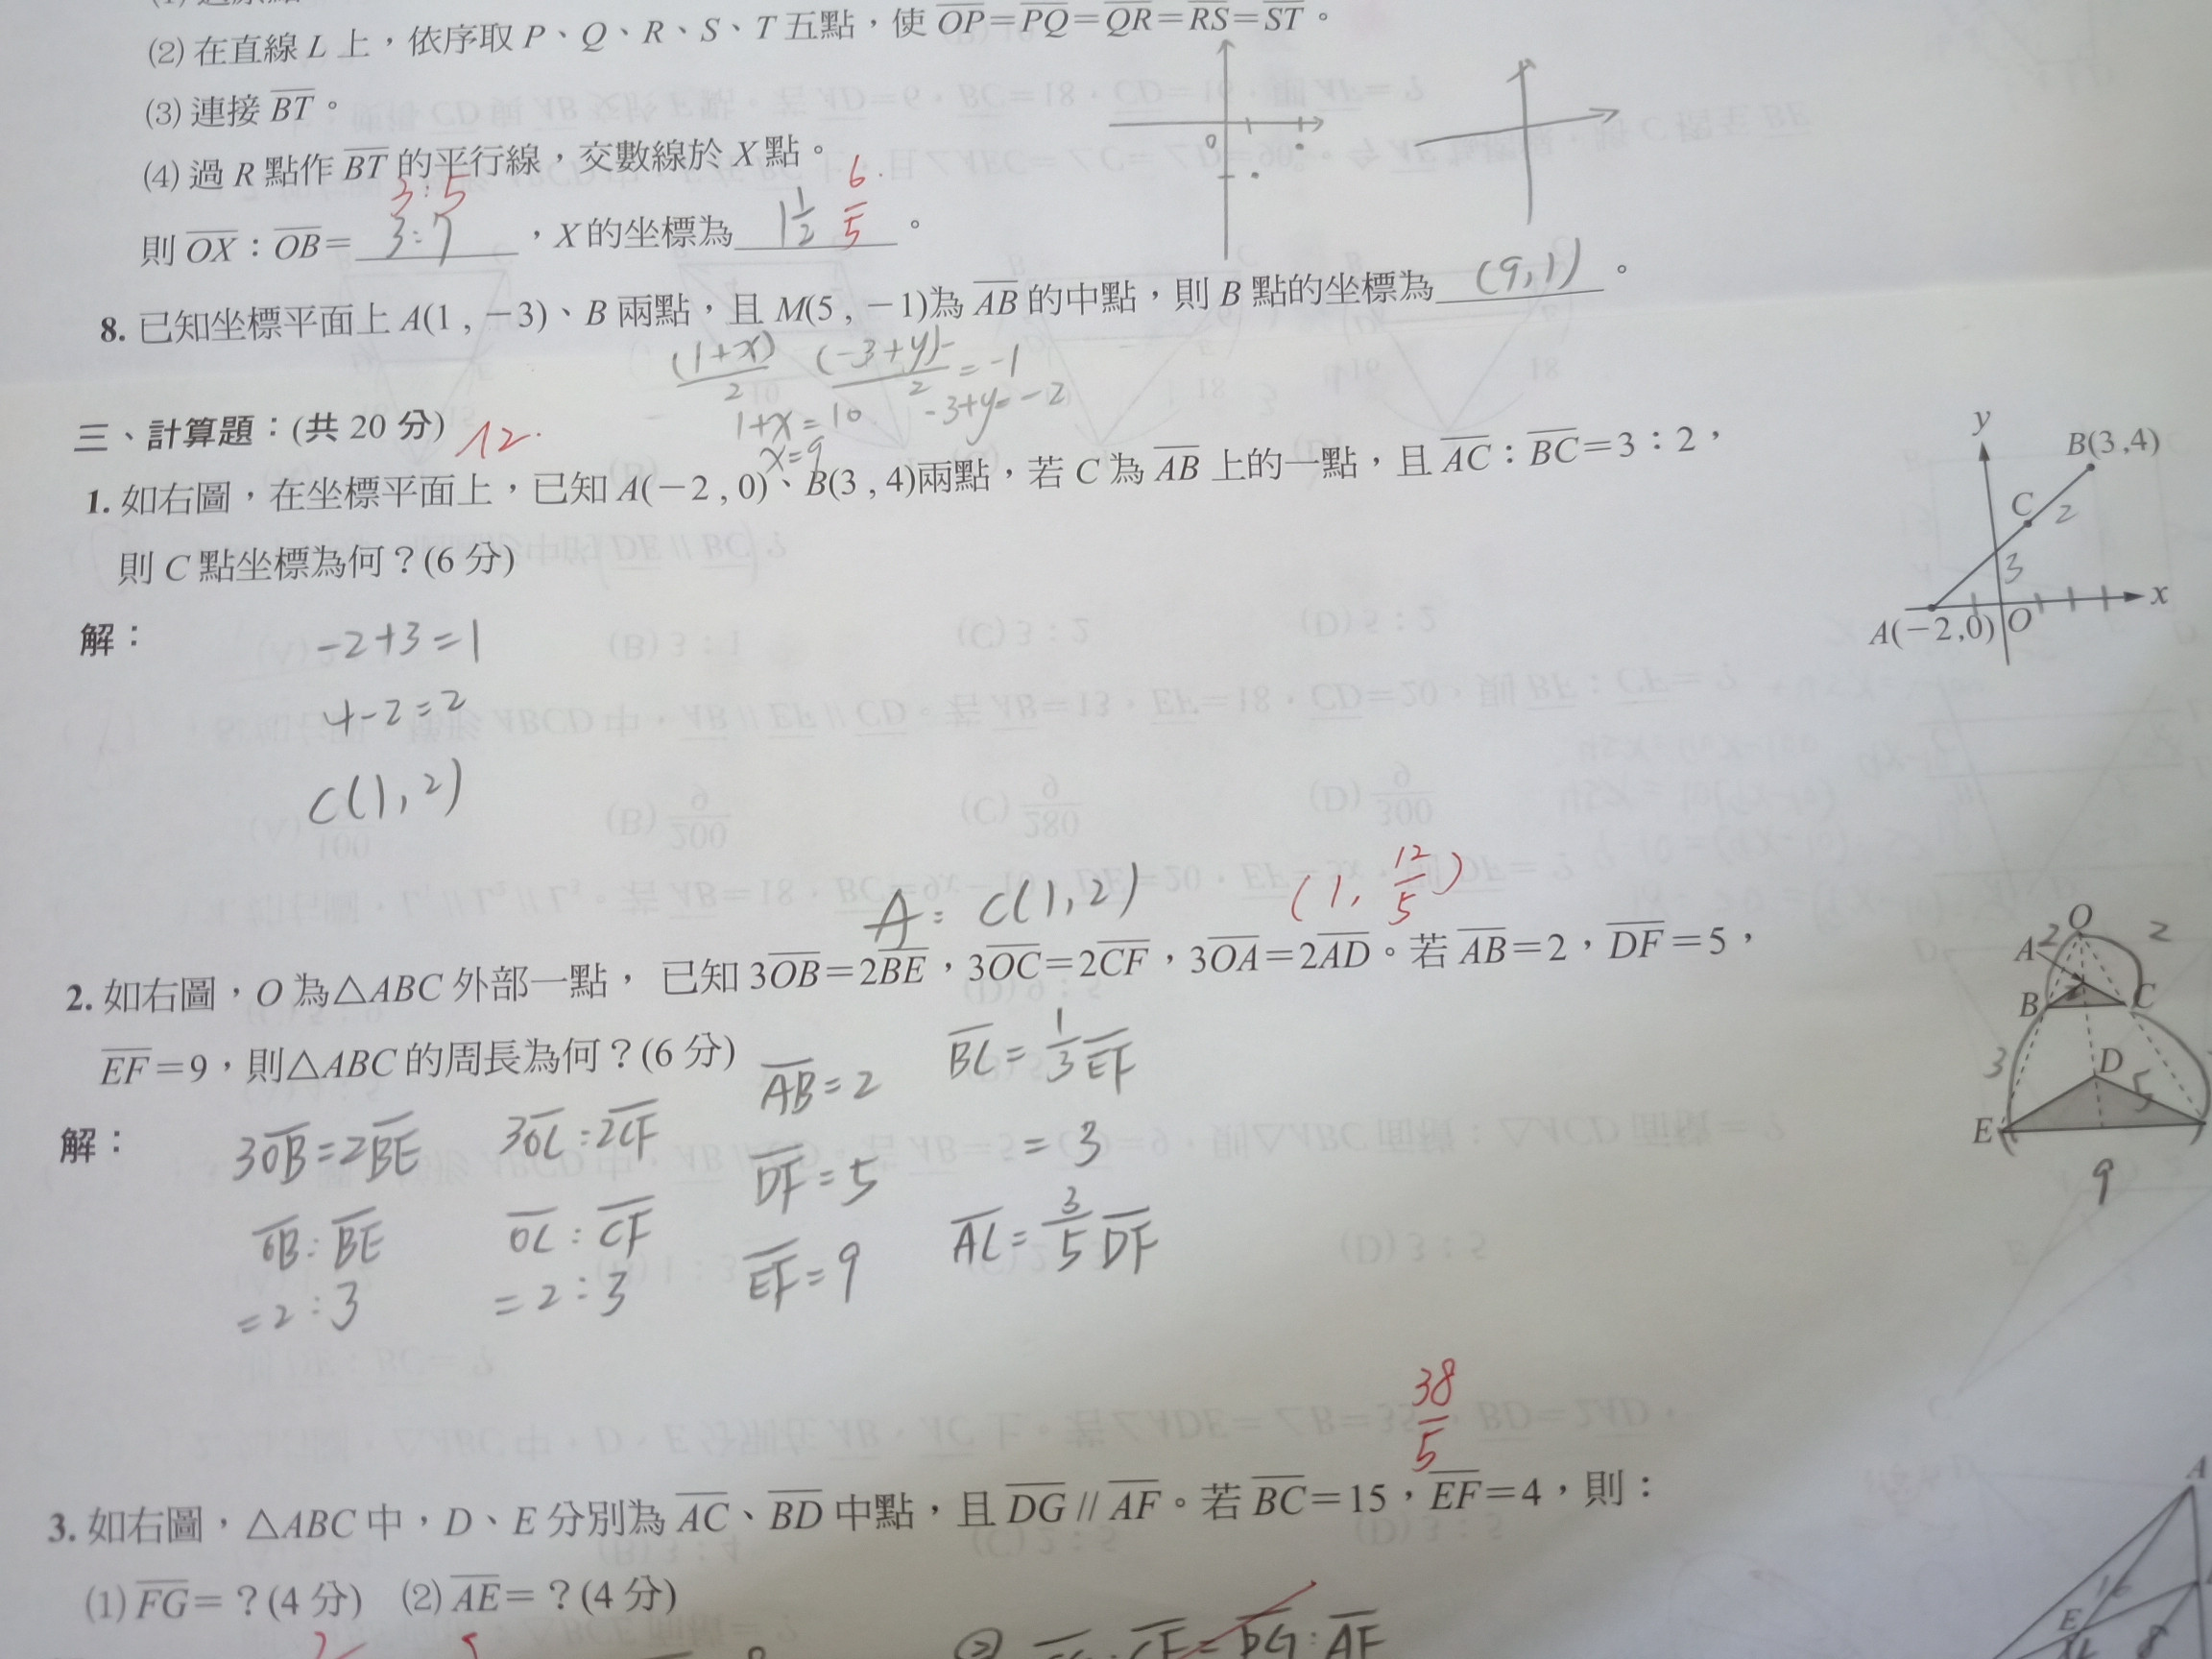 (2) 在直線 L 上，依序取 P、Q、R、S、T 五點，使 OP=PQ=QR=RS=ST。
(3) 連接 BT。
(4) 過 R 點作 BT 的平行線，交數線於 X 點。
3:5
6/5
則 OX：OB= 3:7 ，X 的坐標為 1 1/2 。
0
8. 已知坐標平面上 A(1 , −3)、B 兩點，且 M(5 , −1)為 AB 的中點，則 B 點的坐標為 (9,1) 。
(1+x)/2 (-3+y)/2 = -1
1+x=10 -3+y=-2
x=9
三、計算題：(共 20 分) 12
1. 如右圖，在坐標平面上，已知 A(−2 , 0)、B(3 , 4)兩點，若 C 為 AB 上的一點，且 AC：BC=3：2，
則 C 點坐標為何？(6 分)
y
B(3 ,4)
C
2
3
x
A(−2 ,0)
O
解：
-2+3=1
4-2=2
C(1,2)
A: C(1,2) (1, 12/5)
2. 如右圖，O 為△ABC 外部一點， 已知 3OB=2BE，3OC=2CF，3OA=2AD。若 AB=2，DF=5，
EF=9，則△ABC 的周長為何？(6 分)
解：
3OB=2BE 3OC=2CF AB=2 BC=1/3 EF
OB:BE OC:CF DF=5 =3
=2:3 =2:3 EF=9 AC=3/5 DF
O
A
2
2
B
C
3
D
5
E
9
38/5
3. 如右圖，△ABC 中，D、E 分別為 AC、BD 中點，且 DG // AF。若 BC=15，EF=4，則：
(1) FG=？(4 分) (2) AE=？(4 分)
A
E
8
② CF=DG:AF